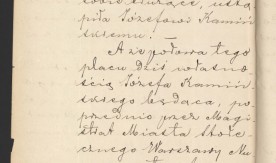 sobie służące, ustą
piła Józefowi Kamiń
skiemu! —
A że połowa tego
placu Dziś własno
ścią Józefa Kamiń
skiego będąca, po
przednio przez Magi
strat Miasta Stołe
cznego Warszawy